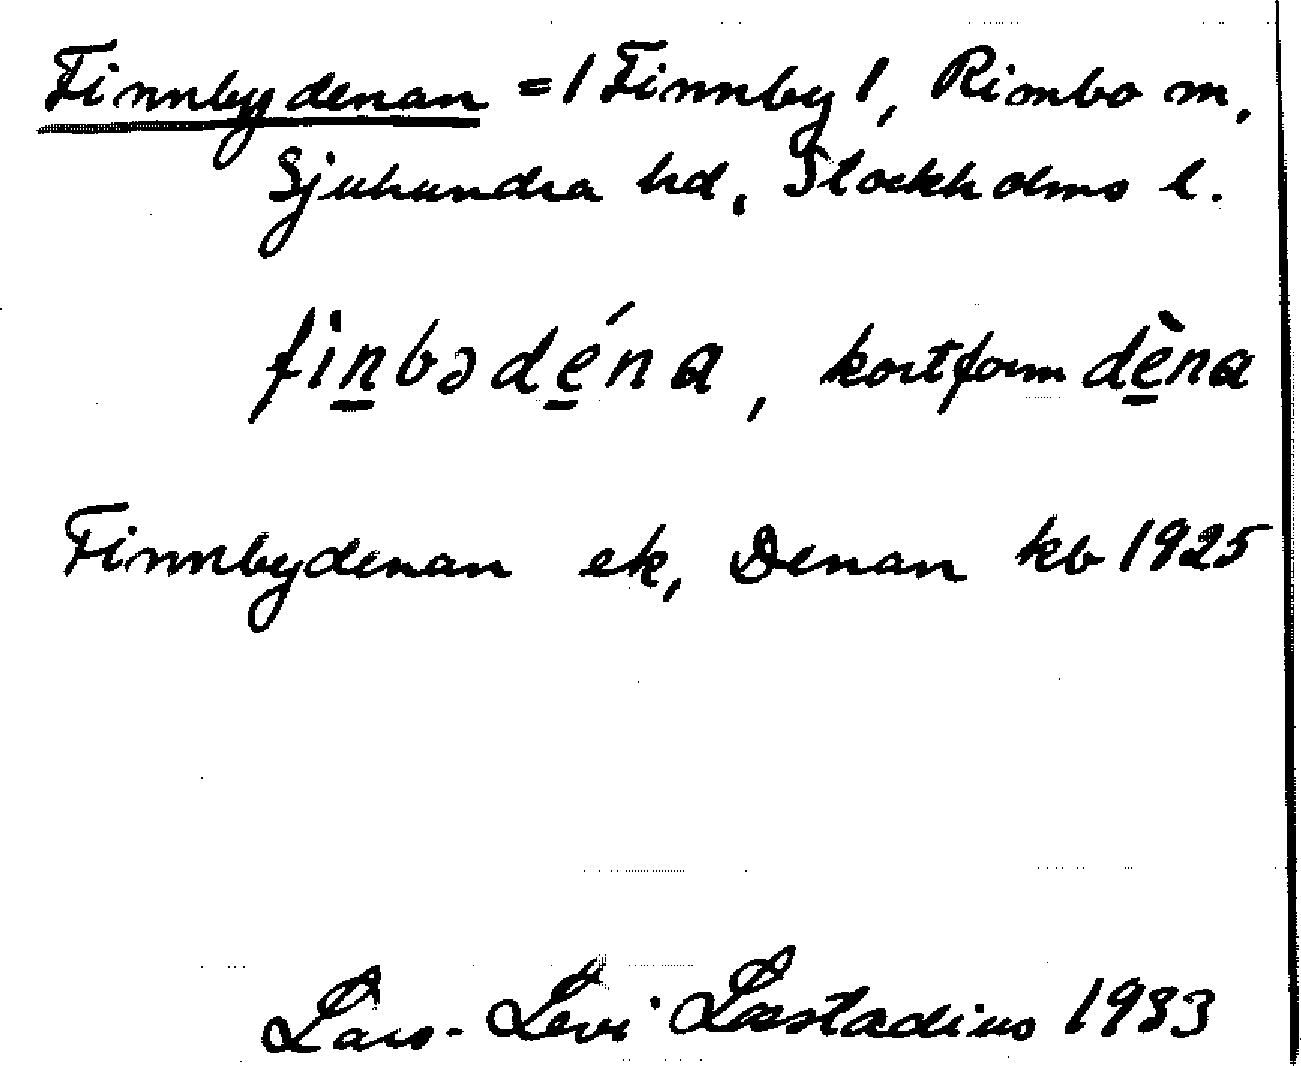 Finnbydenan = / Finnby /, Rimbo sn,
Sjuhundra hd, Stockholms l.
fin̲bədé̲na, kortform dė̲̀na
Finnbydenan ek, Denan kb 1925
Lars-Levi Læstadius 1983